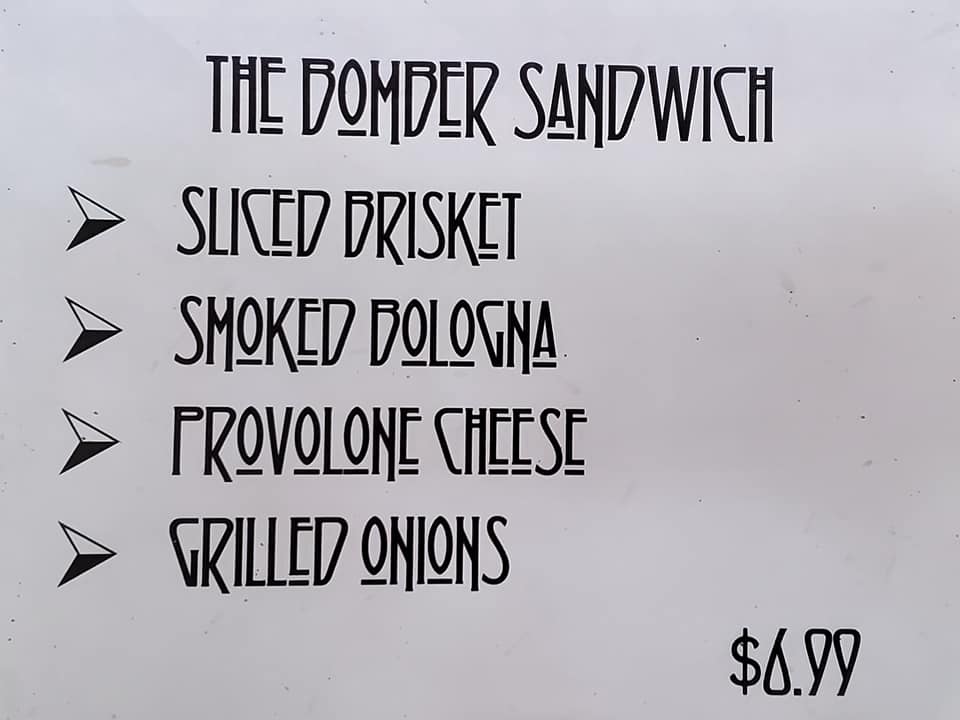 THE BOMBER SANDWICH
SLICED BRISKET
SMOKED BOLOGNA
PROVOLONE CHEESE
GRILLED ONIONS
$6.99